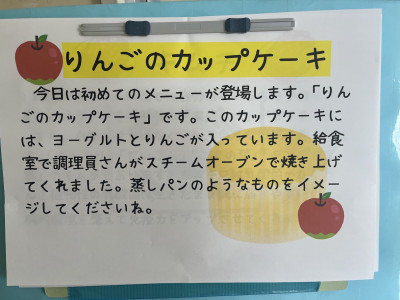 りんごのカップケーキ
今日は初めてのメニューが登場します。「りん
ごのカップケーキ」です。このカップケーキに
は、ヨーグルトとりんごが入っています。給食
室で調理員さんがスチームオーブンで焼き上げ
てくれました。蒸しパンのようなものをイメー
ジしてくださいね。